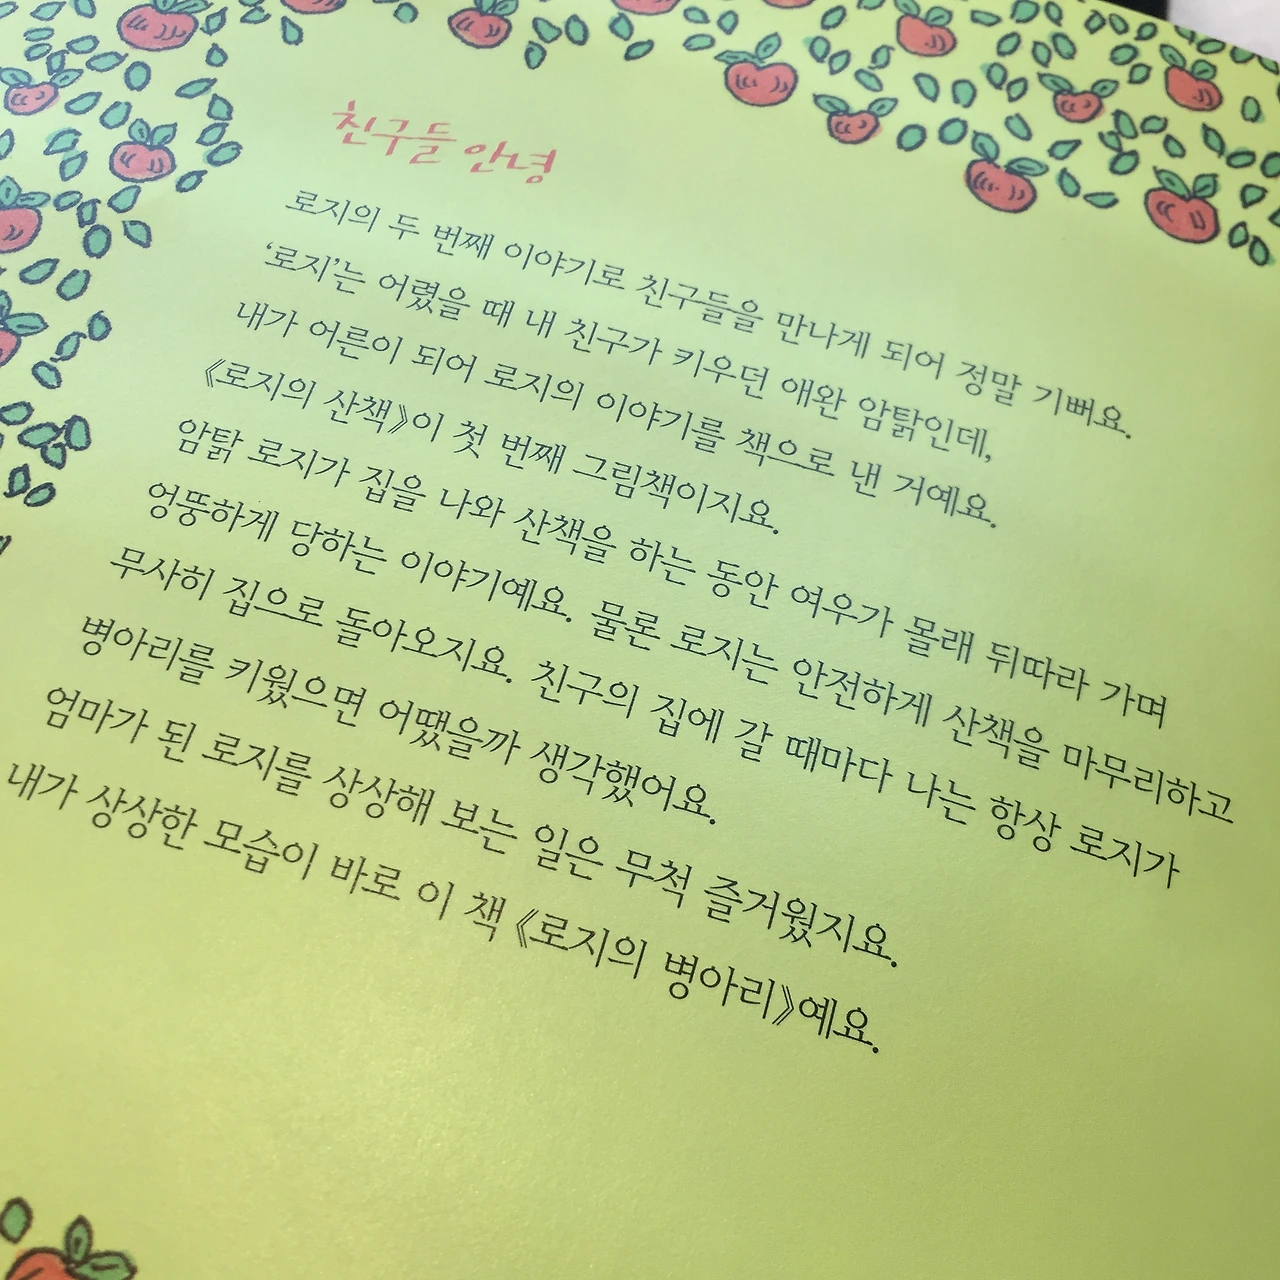 친구들 안녕
로지의 두 번째 이야기로 친구들을 만나게 되어 정말 기뻐요.
‘로지’는 어렸을 때 내 친구가 키우던 애완 암탉인데,
내가 어른이 되어 로지의 이야기를 책으로 낸 거예요.
《로지의 산책》이 첫 번째 그림책이지요.
암탉 로지가 집을 나와 산책을 하는 동안 여우가 몰래 뒤따라 가며
엉뚱하게 당하는 이야기예요. 물론 로지는 안전하게 산책을 마무리하고
무사히 집으로 돌아오지요. 친구의 집에 갈 때마다 나는 항상 로지가
병아리를 키웠으면 어땠을까 생각했어요.
엄마가 된 로지를 상상해 보는 일은 무척 즐거웠지요.
내가 상상한 모습이 바로 이 책 《로지의 병아리》예요.